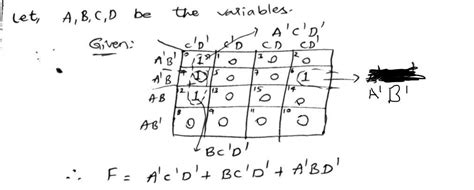 Let, A,B,C,D be the variables.
Given:
A'C'D'
C'D' C'D CD CD'
A'B' 0 1 1 0 3 0 2 0
A'B 4 1 5 0 7 0 6 1
A'B'
AB 12 1 13 0 15 0 14 0
AB' 8 0 9 0 11 0 10 0
BC'D'
∴ F = A'C'D' + BC'D' + A'BD'